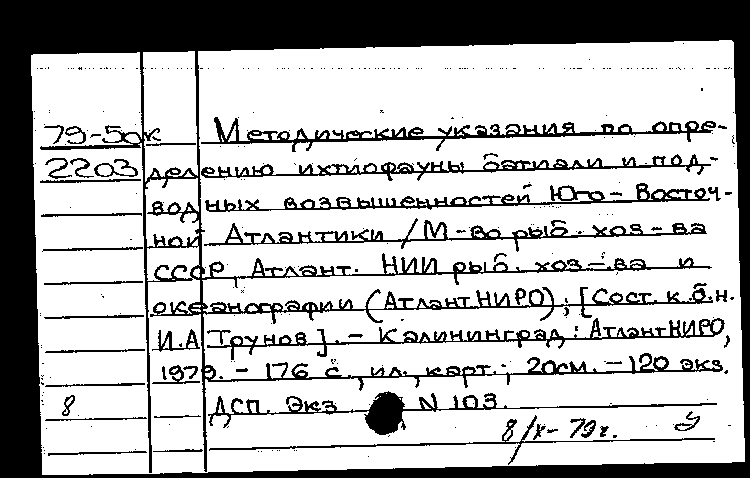 79-5ок Методические указания по опре-
2203 делению ихтиофауны батиали и под-
водных возвышенностей Юго-Восточ-
ной Атлантики / М-во рыб. хоз-ва
СССР, Атлант. НИИ рыб. хоз-ва и
океанографии (АтлантНИРО); [Сост. к.б.н.
И.А Трунов]. - Калининград: АтлантНИРО,
1979. - 176 с., ил., карт.; 20см. - 120 экз.
8 ДСП. Экз N 103.
8/X-79г.